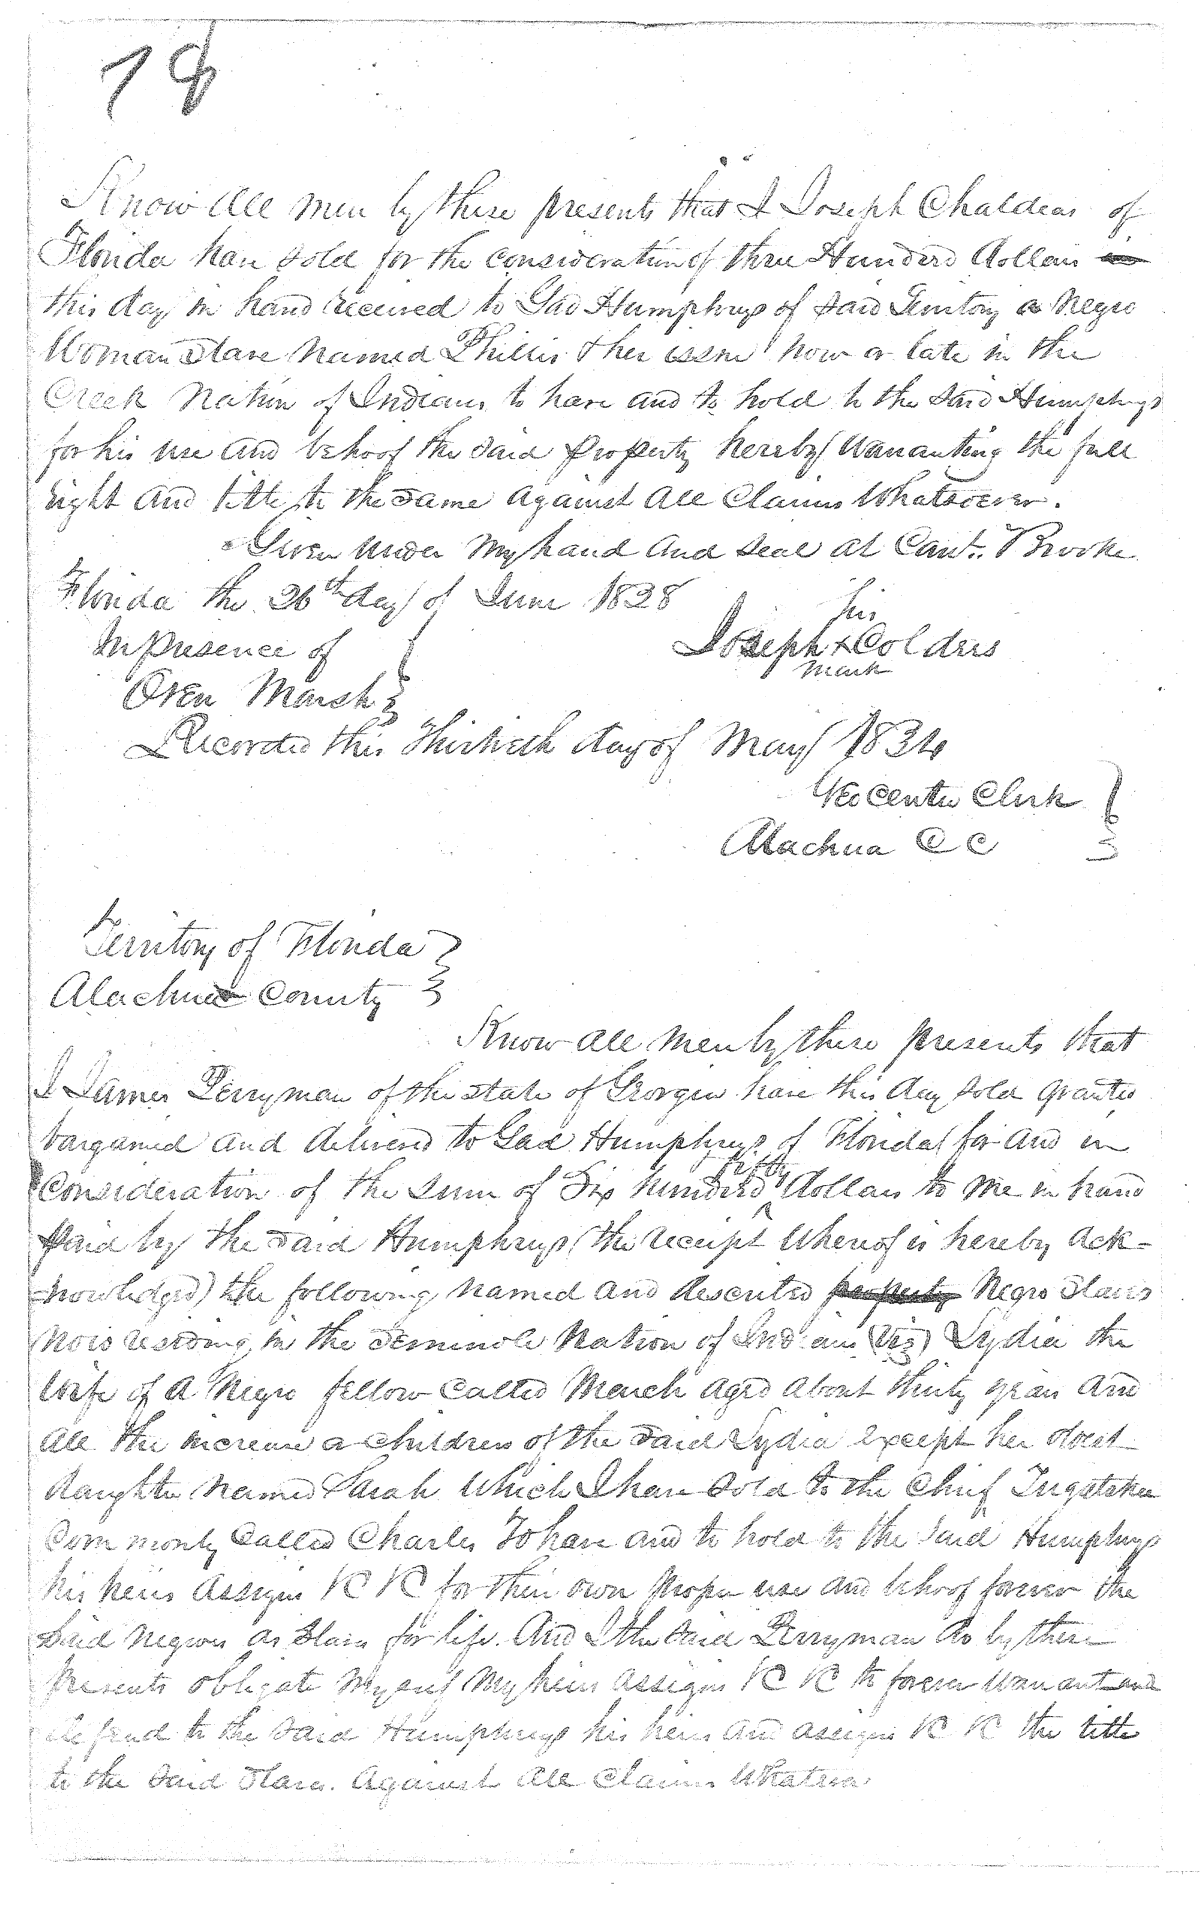 78
Know all men by these presents that I Joseph Chaldeas of
Florida have sold for the consideration of three Hundred dollars
this day in hand received to Gad Humphrys of said Territory a Negro
Woman Slave named Phillis & her issue now or late in the
Creek Nation of Indians to have and to hold to the said Humphrys
for his use and behoof the said property hereby warranting the full
right and title to the same against all Claims Whatsoever.
Given under my hand and seal at Cant. Brooke
Florida the 26th day of June 1828
In presence of
Oven Marsh
his
Joseph x Coldres
mark
Recorded this Thirtieth day of May 1834
Geo Center Clerk
Alachua C C
Territory of Florida
Alachua County
Know all men by these presents that
I James Perryman of the state of Georgia have this day sold granted
bargained and delivered to Gad Humphreys of Florida for and in
fifty
Consideration of the sum of Six hundred ^ dollars to me in hand
paid by the said Humphreys (the receipt whereof is hereby ack=
=nowledged) the following named and described property Negro Slaves
now residing in the Seminole Nation of Indians (viz) Lydia the
Wife of a Negro fellow called Menck aged about thirty years and
all the increase or children of the said Lydia except her oldest
daughter named Sarah which I have sold to the Chief
Commonly Called Charles To have and to hold to the said Humphreys
his heirs assigns &C &C for their own proper use and behoof forever the
said negroes as slaves for life. And I the said Perryman do by these
presents obligate myself my heirs assigns &C &C to forever warrant and
defend to the said Humphreys his heirs and assigns &C &C the title
to the said Slaves. against all claims Whatever